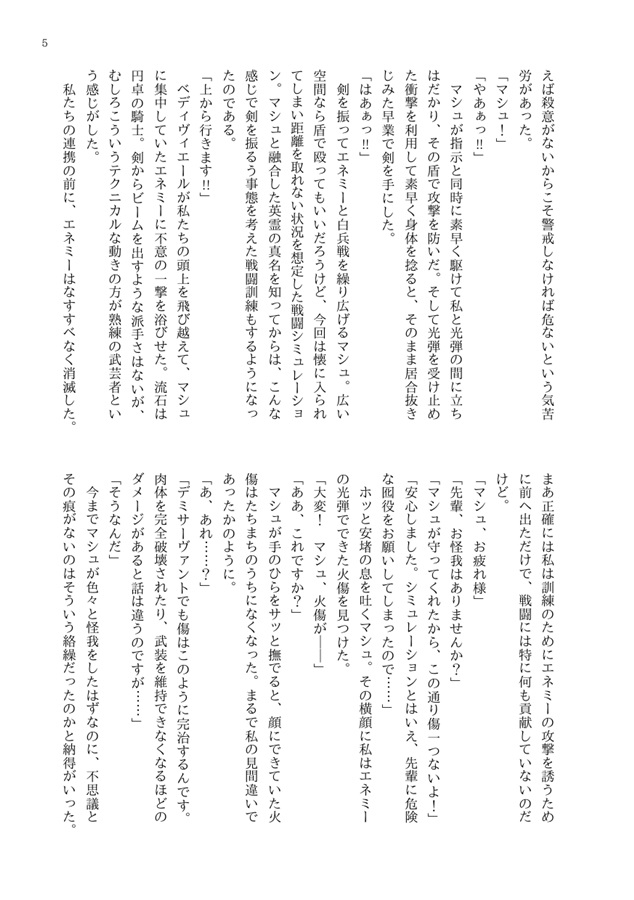 5
えば殺意がないからこそ警戒しなければ危ないという気苦
労があった。
「マシュ！」
「やあぁっ!!」
　マシュが指示と同時に素早く駆けて私と光弾の間に立ち
はだかり、その盾で攻撃を防いだ。そして光弾を受け止め
た衝撃を利用して素早く身体を捻ると、そのまま居合抜き
じみた早業で剣を手にした。
「はあぁっ!!」
　剣を振ってエネミーと白兵戦を繰り広げるマシュ。広い
空間なら盾で殴ってもいいだろうけど、今回は懐に入られ
てしまい距離を取れない状況を想定した戦闘シミュレーショ
ン。マシュと融合した英霊の真名を知ってからは、こんな
感じで剣を振るう事態を考えた戦闘訓練もするようになっ
たのである。
「上から行きます!!」
　ベディヴィエールが私たちの頭上を飛び越えて、マシュ
に集中していたエネミーに不意の一撃を浴びせた。流石は
円卓の騎士。剣からビームを出すような派手さはないが、
むしろこういうテクニカルな動きの方が熟練の武芸者とい
う感じがした。
　私たちの連携の前に、エネミーはなすすべなく消滅した。
まあ正確には私は訓練のためにエネミーの攻撃を誘うため
に前へ出ただけで、戦闘には特に何も貢献していないのだ
けど。
「マシュ、お疲れ様」
「先輩、お怪我はありませんか？」
「マシュが守ってくれたから、この通り傷一つないよ！」
「安心しました。シミュレーションとはいえ、先輩に危険
な囮役をお願いしてしまったので……」
　ホッと安堵の息を吐くマシュ。その横顔に私はエネミー
の光弾でできた火傷を見つけた。
「大変！　マシュ、火傷が――」
「ああ、これですか？」
　マシュが手のひらをサッと撫でると、顔にできていた火
傷はたちまちのうちになくなった。まるで私の見間違いで
あったかのように。
「あ、あれ……？」
「デミサーヴァントでも傷はこのように完治するんです。
肉体を完全破壊されたり、武装を維持できなくなるほどの
ダメージがあると話は違うのですが……」
「そうなんだ」
　今までマシュが色々と怪我をしたはずなのに、不思議と
その痕がないのはそういう絡繰だったのかと納得がいった。